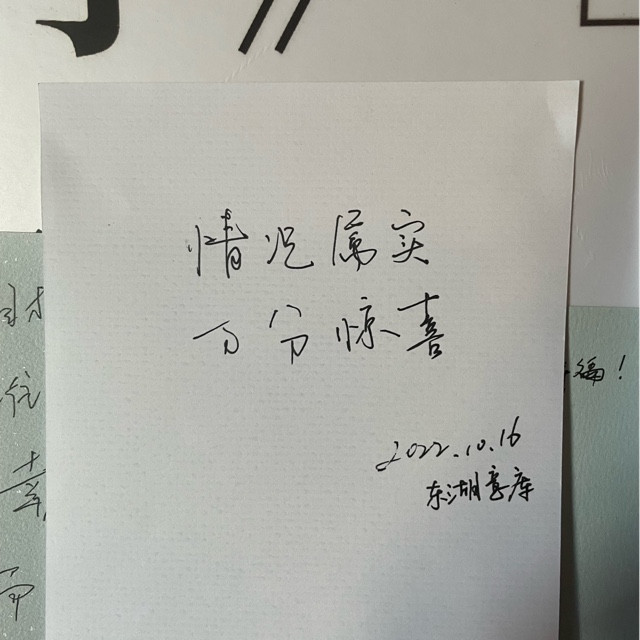 情况属实
万分惊喜
2022.10.16
东湖意库
编！
往
幸